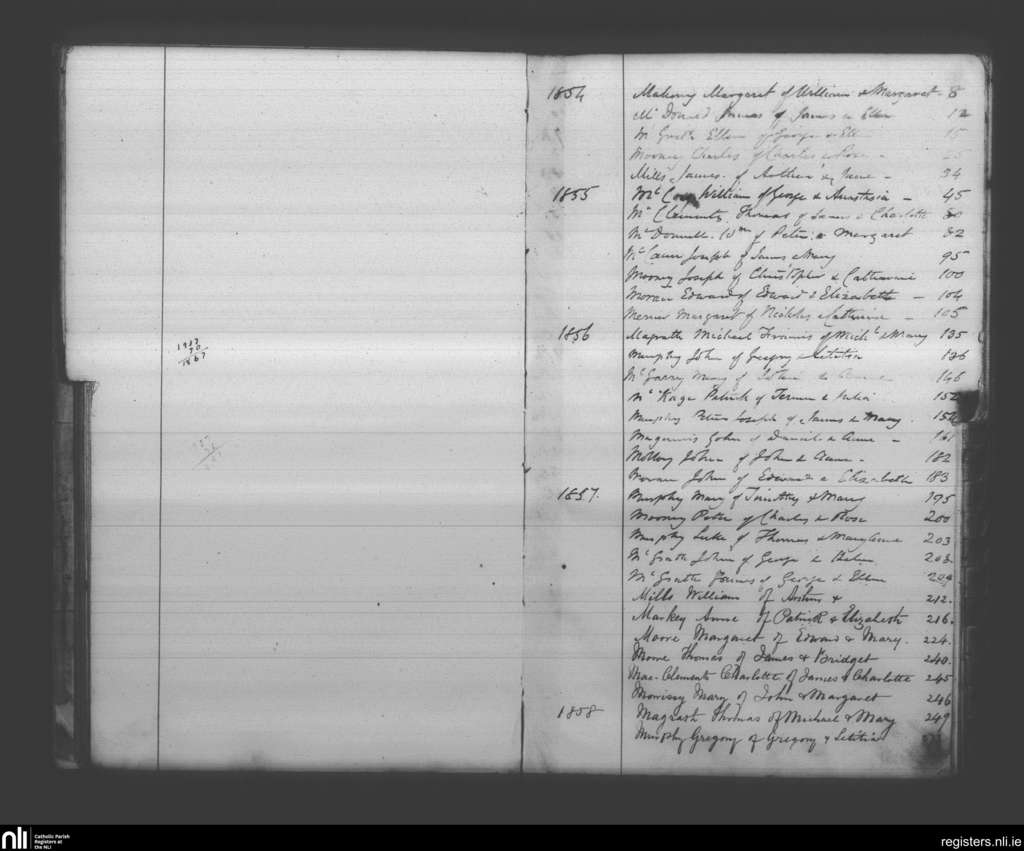 1854 Mahony Margaret of William & Margaret - 8
Mc Donald James of James & Ellen 12
Mc Grath Ellen of George & Ell 15
Moran Charles of Charles & Rose -
Mills James of Arthur & Jane - 34
1855 Mc William of George & Anastasia - 45
Mc Clements Thomas of James & Charlotte
Mc Donnell Wm of Peter & Margaret
Mc Cann Joseph of James & Mary 95
Mooney Joseph of Christopher & Catherine 100
Moran Edward of Edward & Elizabeth - 104
Margaret of Nicholas & Catherine - 105
1856 Magrath Michael Francis of Michl & Mary 135
Murphy John of Gregory & Letitia 136
Mc Garry Mary of & 146
Mc Patrick of & 152
Murphy Peter Joseph of James & Mary. 154
Maguinis John of Daniel & Anne - 161
Molloy John of John & Anne - 182
Moran John of Edward & Elizabeth 183
1857. Murphy Mary of Timothy & Mary 195
Mooney Peter of Charles & Rose 200
Murphy Luke of Thomas & Mary Anne 203
Mc Grath John of George & 203
Mc Grath James of George & Ellen
Mills William of Arthur & 212.
Markey Anne of Patrick & Elizabeth 216.
Moore Margaret of Edward & Mary. 224.
Moore Thomas of James & Bridget 240.
Mac-Clements Charlotte of James & Charlotte 245
Morrissy Mary of John & Margaret 246
1858 Magrath Thomas of Michael & Mary 249
Murphy Gregory of Gregory & Letitia
1867
nli Catholic Parish Registers at the NLI
registers.nli.ie